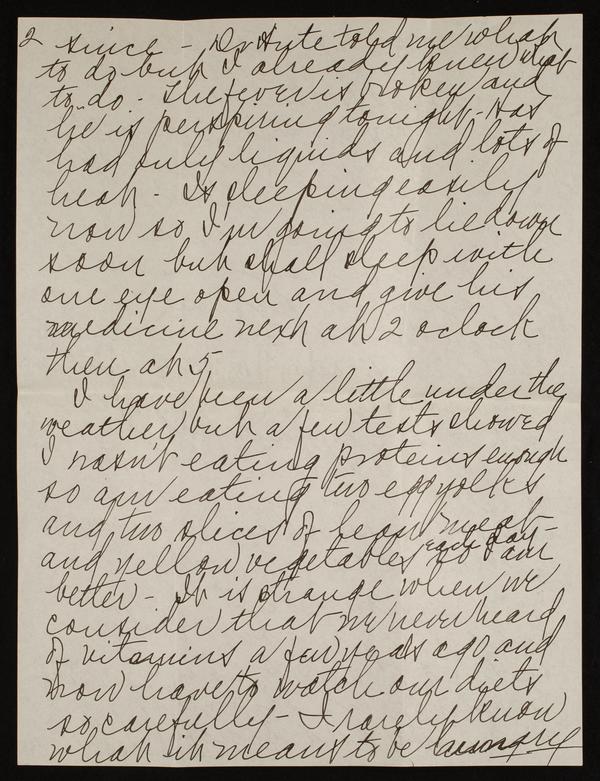 2 since - Dr Hute told me what
to do but I already knew what
to do - The fever is broken and
he is perspiring tonight - Has
had only liquids and lots of
heat - Is sleeping easily
now so I'm going to lie down
soon but shall sleep with
one eye open and give his
medicine next at 2 oclock
then at 5
I have been a little under the
weather but a few tests showed
I wasn't eating proteins enough
so am eating two egg yolks
and two slices of lean meat -
and yellow vegetables each day - so I am
better - It is strange when we
consider that we never heard
of vitamins a few years ago and
now have to watch our diets
so carefully - I rarely know
what it means to be hungry